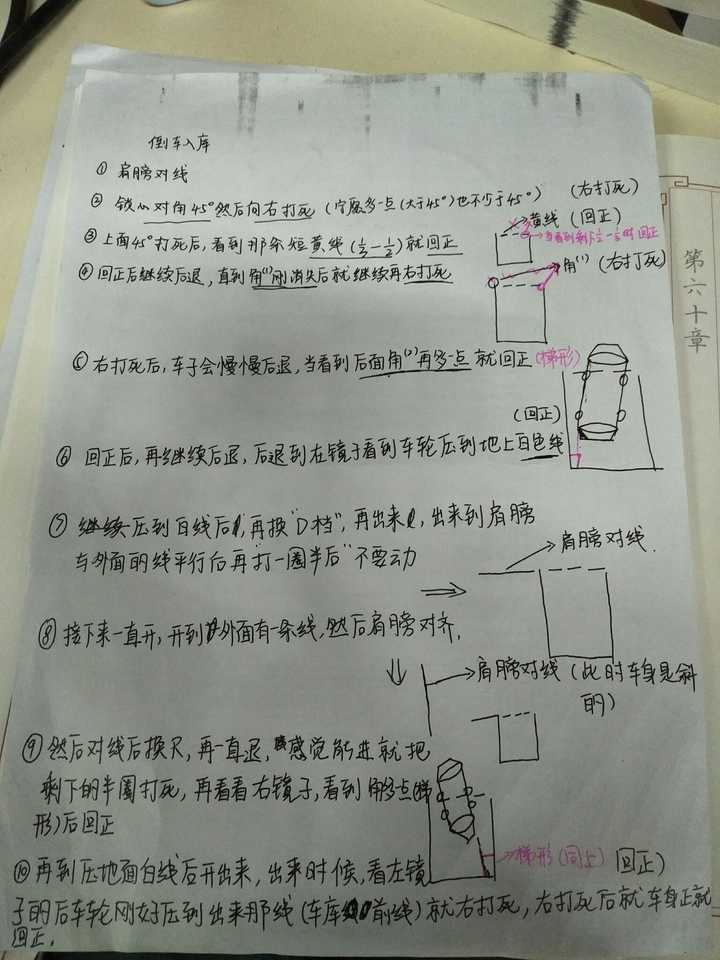 倒车入库
① 肩膀对线
② 铁心对角45°然后向右打死（宁愿多一点(大于45°)也不少于45°）（右打死）
黄线（回正）
③ 上面45°打死后,看到那条短黄线(⅓-½)就回正
当看到剩下⅓-½时回正
④ 回正后继续后退,直到角⁽¹⁾刚消失后就继续再右打死
角⁽¹⁾（右打死）
⑤ 右打死后,车子会慢慢后退,当看到后面角⁽²⁾再多一点就回正(梯形)
(回正)
⑥ 回正后,再继续后退,后退到左镜子看到车轮压到地上白色线
⑦ 继续压到白线后,再换"D档",再出来,出来到肩膀
与外面的线平行后再"打一圈半后"不要动
肩膀对线.
⑧ 接下来一直开,开到外面有一条线,然后肩膀对齐.
肩膀对线（此时车身是斜
的）
⑨ 然后对线后换R,再一直退,感觉能进就把
剩下的半圈打死,再看看右镜子,看到角多点(梯
形)后回正
梯形(同上) 回正)
⑩ 再到压地面白线后开出来,出来时候,看左镜
子的后车轮刚好压到出来那线(车库前线)就右打死,右打死后就车身正就
回正.
第六十章